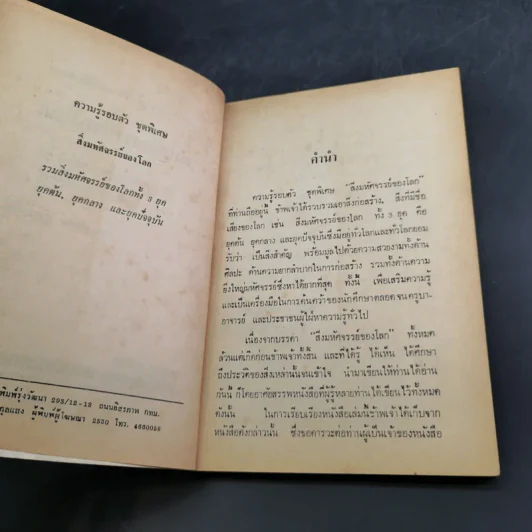 ความรู้รอบตัว ชุดพิเศษ
สิ่งมหัศจรรย์ของโลก
รวมสิ่งมหัศจรรย์ของโลกทั้ง 3 ยุค
ยุคต้น, ยุคกลาง และยุคปัจจุบัน
พิมพ์รุ่งวัฒนา 295/12-13 ถนนอิสรภาพ กทม.
กุลแสง ผู้พิมพ์ผู้โฆษณา 2500 โทร. 4660055
คำนำ
ความรู้รอบตัว ชุดพิเศษ "สิ่งมหัศจรรย์ของโลก"
ที่ท่านถืออยู่นี้ ข้าพเจ้าได้รวบรวมเอาสิ่งก่อสร้าง, สิ่งที่มีชื่อ
เสียงของโลก เช่น สิ่งมหัศจรรย์ของโลก ทั้ง 3 ยุค คือ
ยุคต้น ยุคกลาง และยุคปัจจุบันซึ่งมีอยู่ทั่วโลกและทั่วโลกยอม
รับว่า เป็นสิ่งสำคัญ พร้อมมูลไปด้วยความสวยงามทั้งด้าน
ศิลปะ ด้านความยากลำบากในการก่อสร้าง รวมทั้งด้านความ
ยิ่งใหญ่มหัศจรรย์ซึ่งหาได้ยากที่สุด ทั้งนี้ เพื่อเสริมความรู้
และเป็นเครื่องมือในการค้นคว้าของนักศึกษาตลอดจนครูบา-
อาจารย์ และประชาชนผู้ใฝ่หาความรู้ทั่วไป
เนื่องจากบรรดา "สิ่งมหัศจรรย์ของโลก" ทั้งหมด
ส่วนแต่เกิดก่อนข้าพเจ้าทั้งสิ้น และที่ได้รู้ ได้เห็น ได้ศึกษา
ถึงประวัติของสิ่งเหล่านั้นจนเข้าใจ นำมาเขียนให้ท่านได้อ่าน
กันนี้ ก็โดยอาศัยสรรพหนังสือที่ผู้รู้หลายท่านได้เขียนไว้ทั้งหมด
ดังนั้น ในการเรียบเรียงหนังสือเล่มนี้ข้าพเจ้าได้เก็บจาก
หนังสือดังกล่าวนั้น ซึ่งขอคารวะต่อท่านผู้เป็นเจ้าของหนังสือ